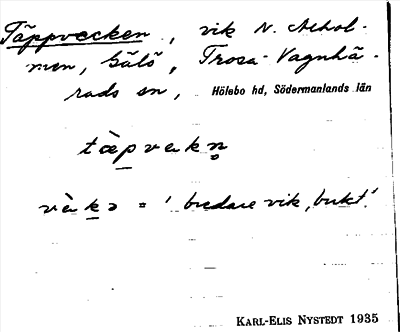 Täppvecken, vik N. Athol-
men, Gälö, Trosa-Vagnhä-
rads sn, Hölebo hd, Södermanlands län
tæpvekn̥
vèkə = 'bredare vik, bukt.'
KARL-ELIS NYSTEDT 1935